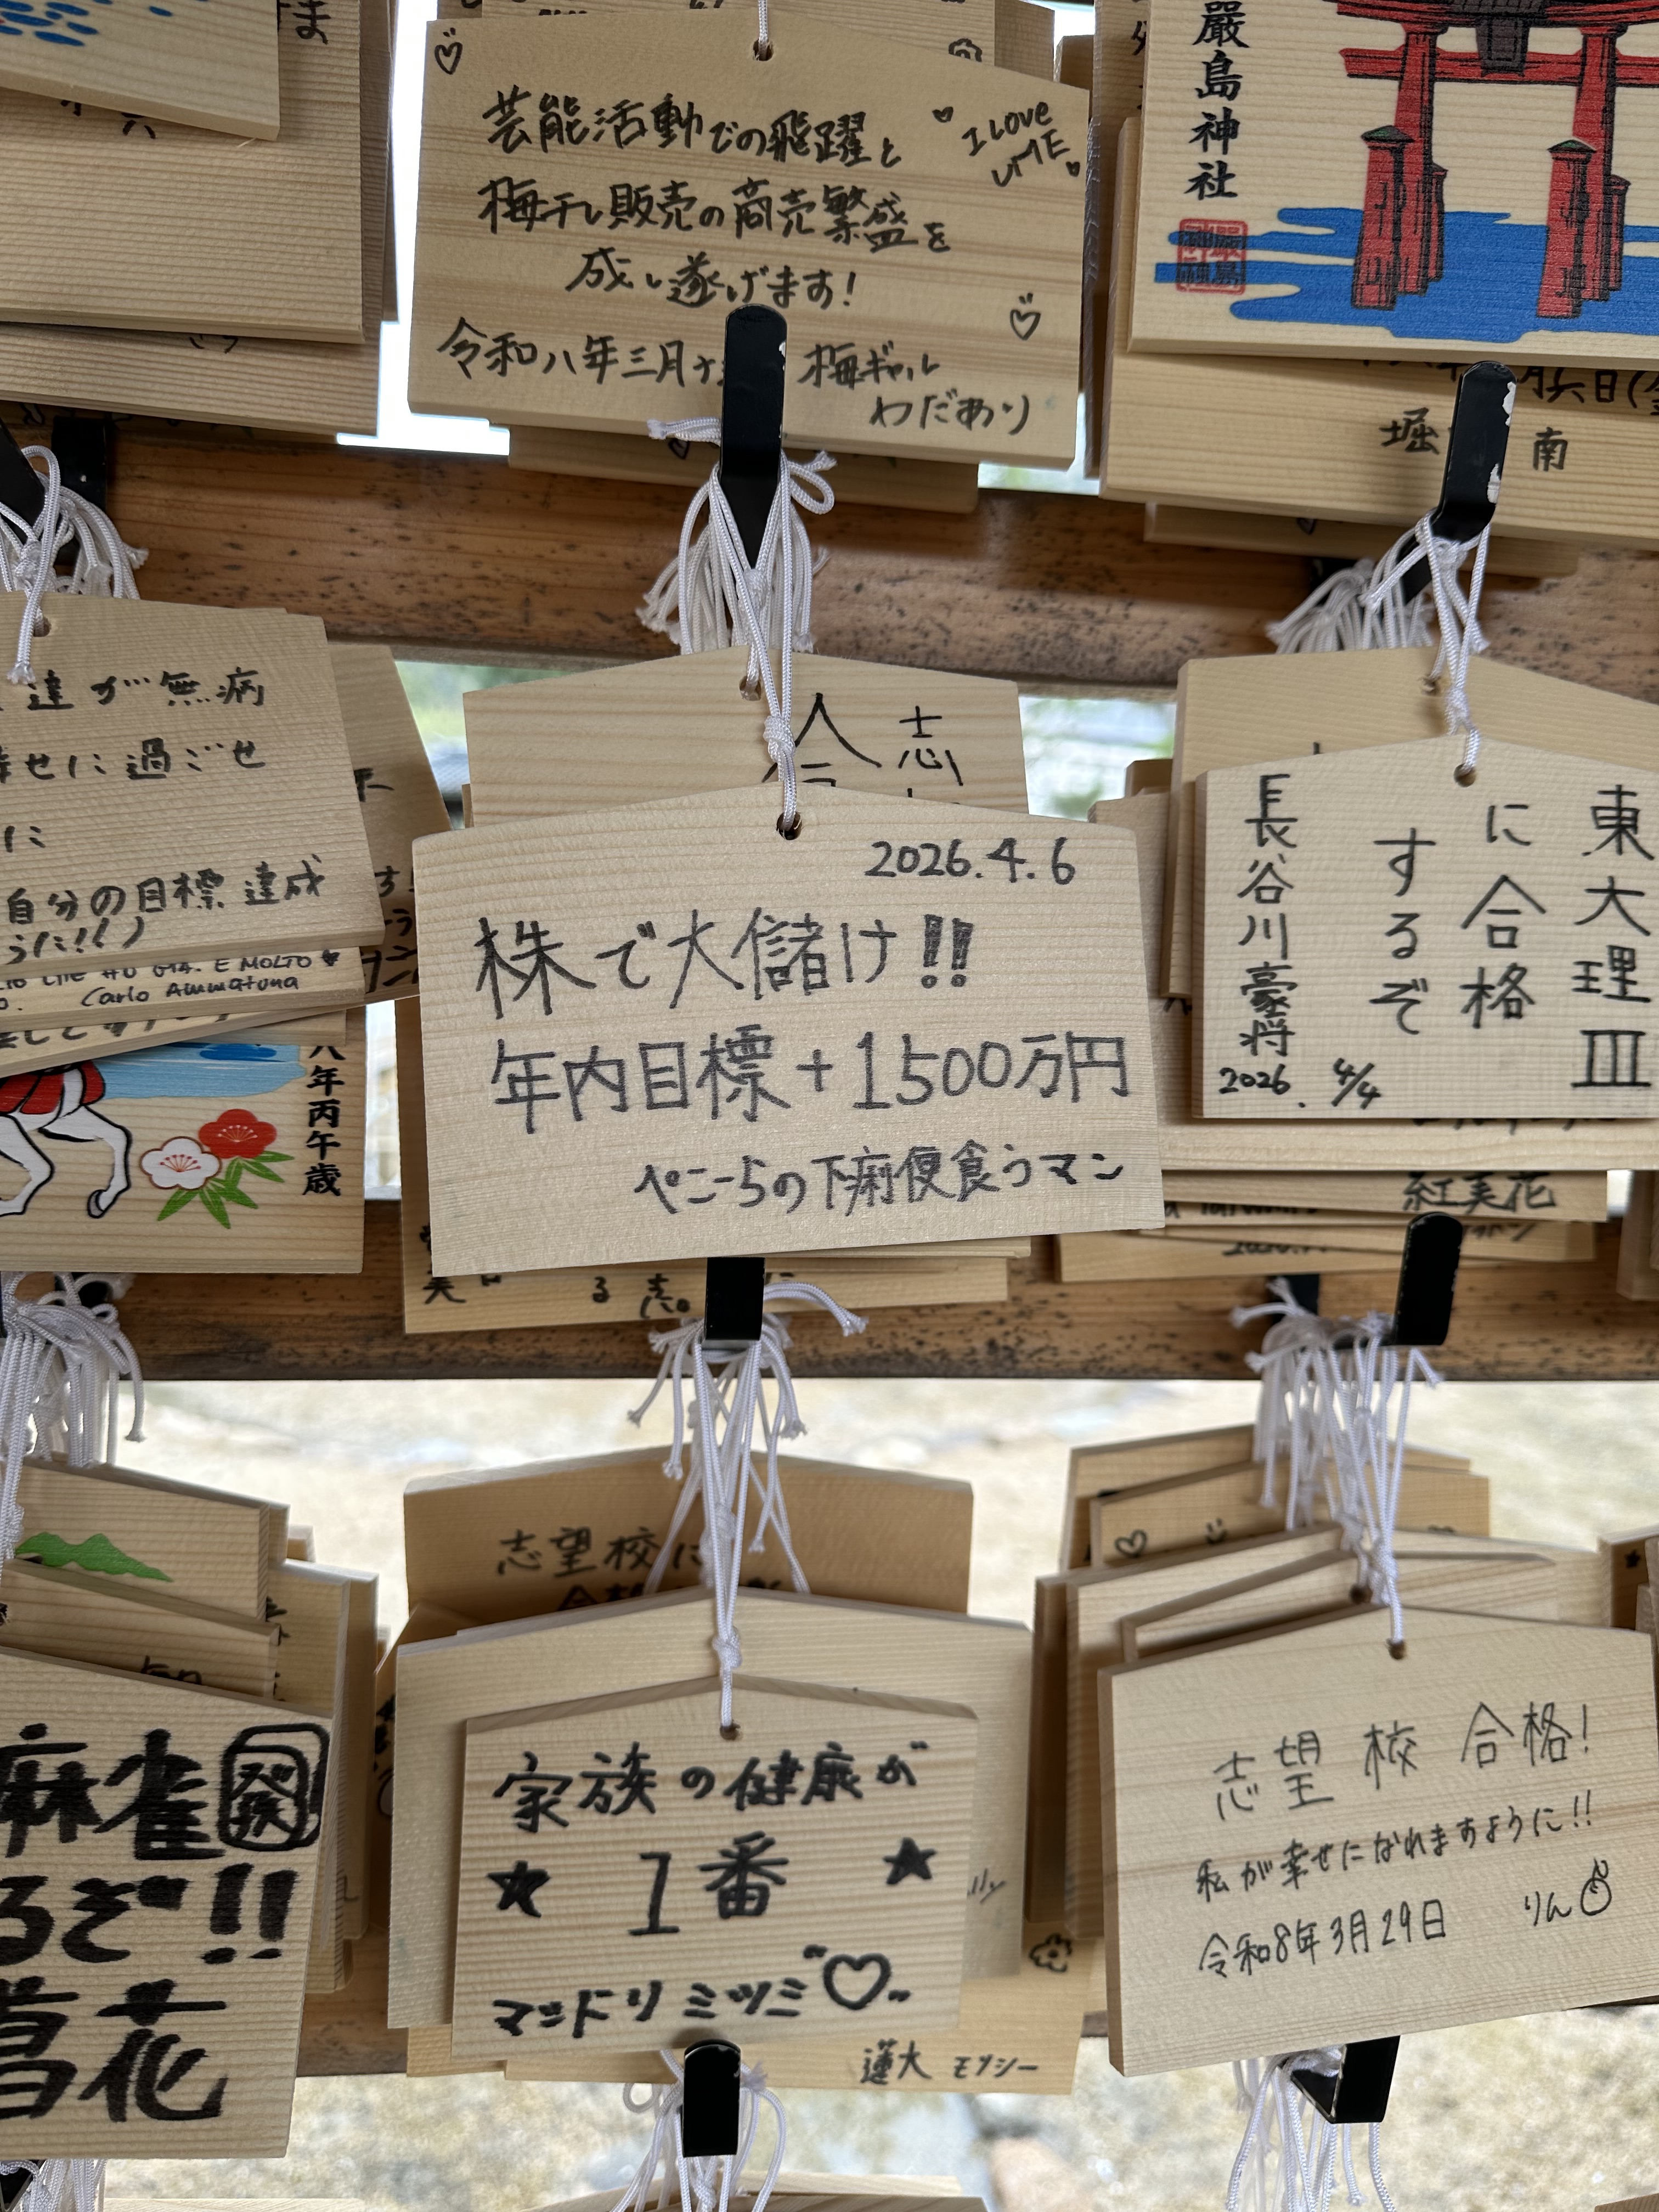 芸能活動での飛躍と
梅干し販売の商売繁盛を
成し遂げます!
令和八年三月
梅ギャル
わだあり
I Love
UME
嚴島神社
月六日(金
堀
南
達が無病
幸せに過ごせ
に
自分の目標達成
E MOLTO
Carlo Ammatuna
八年丙午歳
2026.4.6
株で大儲け!!
年内目標+1500万円
ぺにーらの下痢便食うマン
東大理III
に合格
するぞ
長谷川豪将
2026. 4/4
紅実花
志望校に
麻雀
發
るぞ!!
花
家族の健康が
★ 1番 ★
マッドリミツミ♡
蓮大 モツシー
志望校 合格!
私が幸せになれますように!!
令和8年3月29日 りん